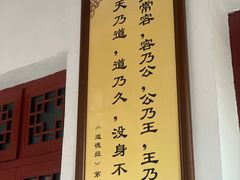 常容，容乃公，公乃王，王乃
天乃道，道乃久，没身不
《道德经》第